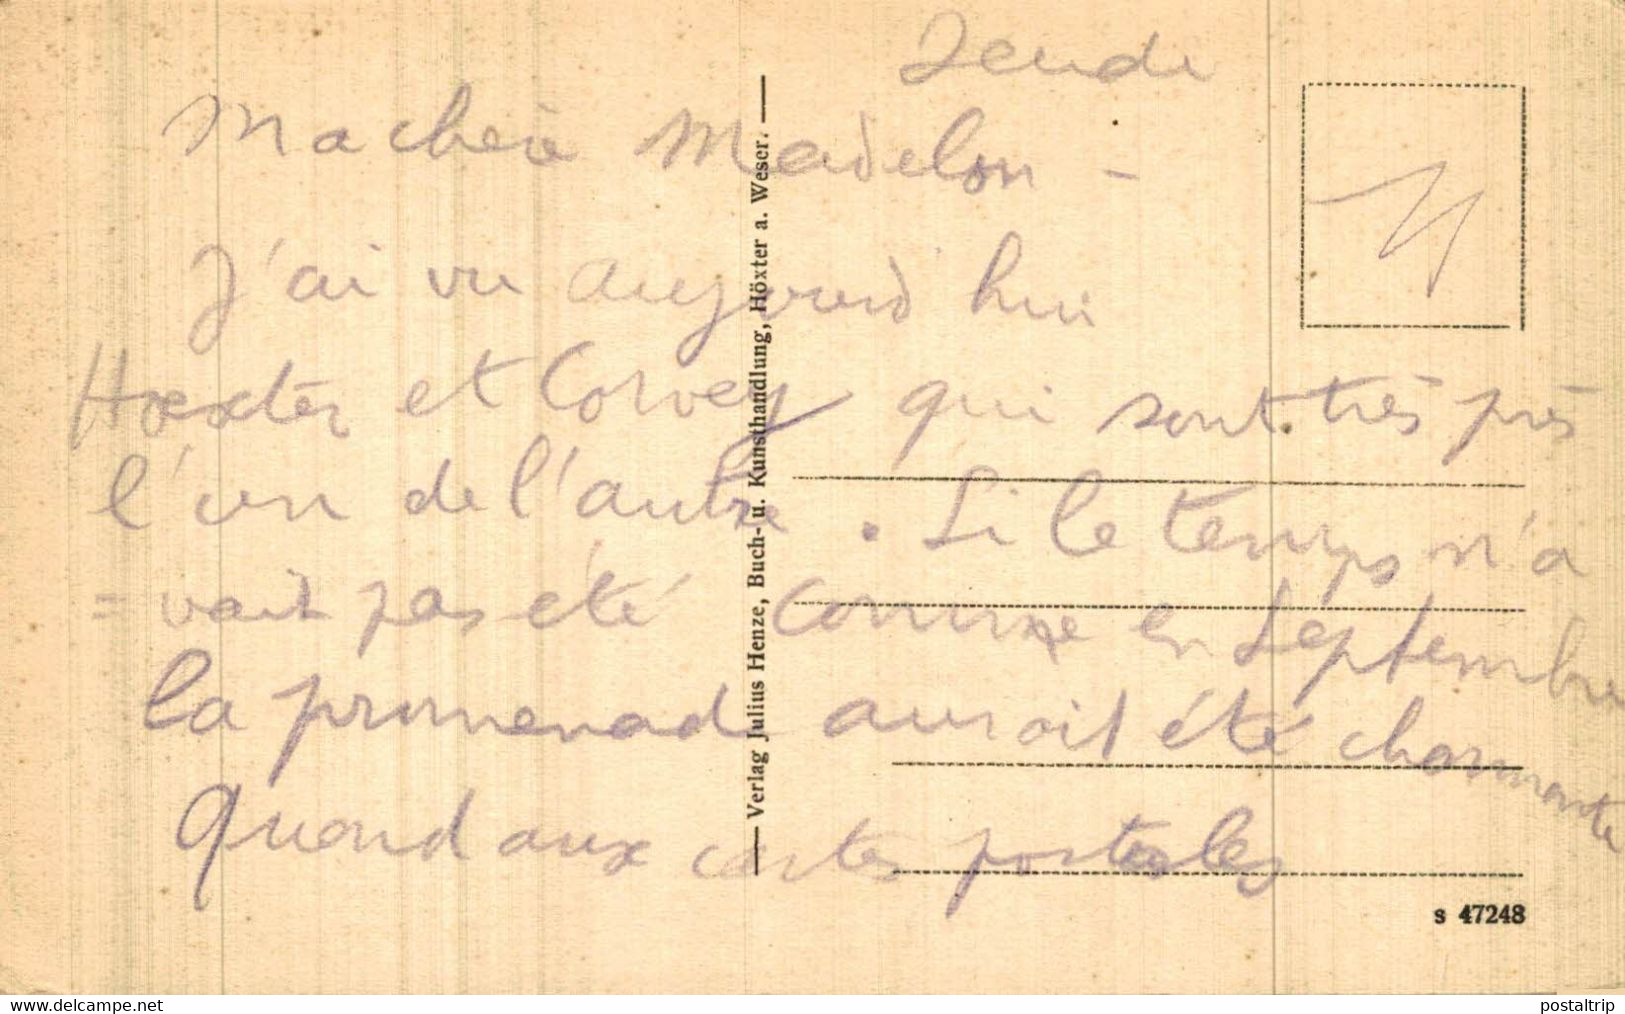 Jeudi
Ma chère Madelon -
J'ai vu aujourd'hui
Hoexter et Corvey qui sont très près
l'un de l'autre. Si le temps n'a
= vait pas été comme en Septembre
la promenade auroit été charmante
Quand aux cartes postales
Verlag Julius Henze, Buch- u. Kunsthandlung, Höxter a. Weser.
S 47248
https://www.delcampe.net
postaltrip